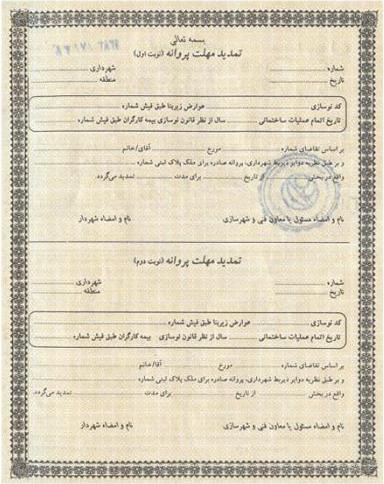 بسمه تعالی
تمدید مهلت پروانه (نوبت اول)
شماره شهرداری
تاریخ منطقه
کد نوسازی عوارض زیربنا طبق فیش شماره
تاریخ اتمام عملیات ساختمانی سال از نظر قانون نوسازی بیمه کارگران طبق فیش شماره
بر اساس تقاضای شماره مورخ آقای/خانم
و بر طبق نظریه دوایر ذیربط شهرداری، پروانه صادره برای ملک پلاک ثبتی شماره
واقع در بخش از تاریخ برای مدت تمدید می‌گردد.
نام و امضاء مسئول یا معاون فنی و شهرسازی نام و امضاء شهردار
تمدید مهلت پروانه (نوبت دوم)
شماره شهرداری
تاریخ منطقه
کد نوسازی عوارض زیربنا طبق فیش شماره
تاریخ اتمام عملیات ساختمانی سال از نظر قانون نوسازی بیمه کارگران طبق فیش شماره
بر اساس تقاضای شماره مورخ آقا/خانم
و بر طبق نظریه دوایر ذیربط شهرداری، پروانه صادره برای ملک پلاک ثبتی شماره
واقع در بخش از تاریخ برای مدت تمدید می‌گردد.
نام و امضاء مسئول یا معاون فنی و شهرسازی نام و امضاء شهردار